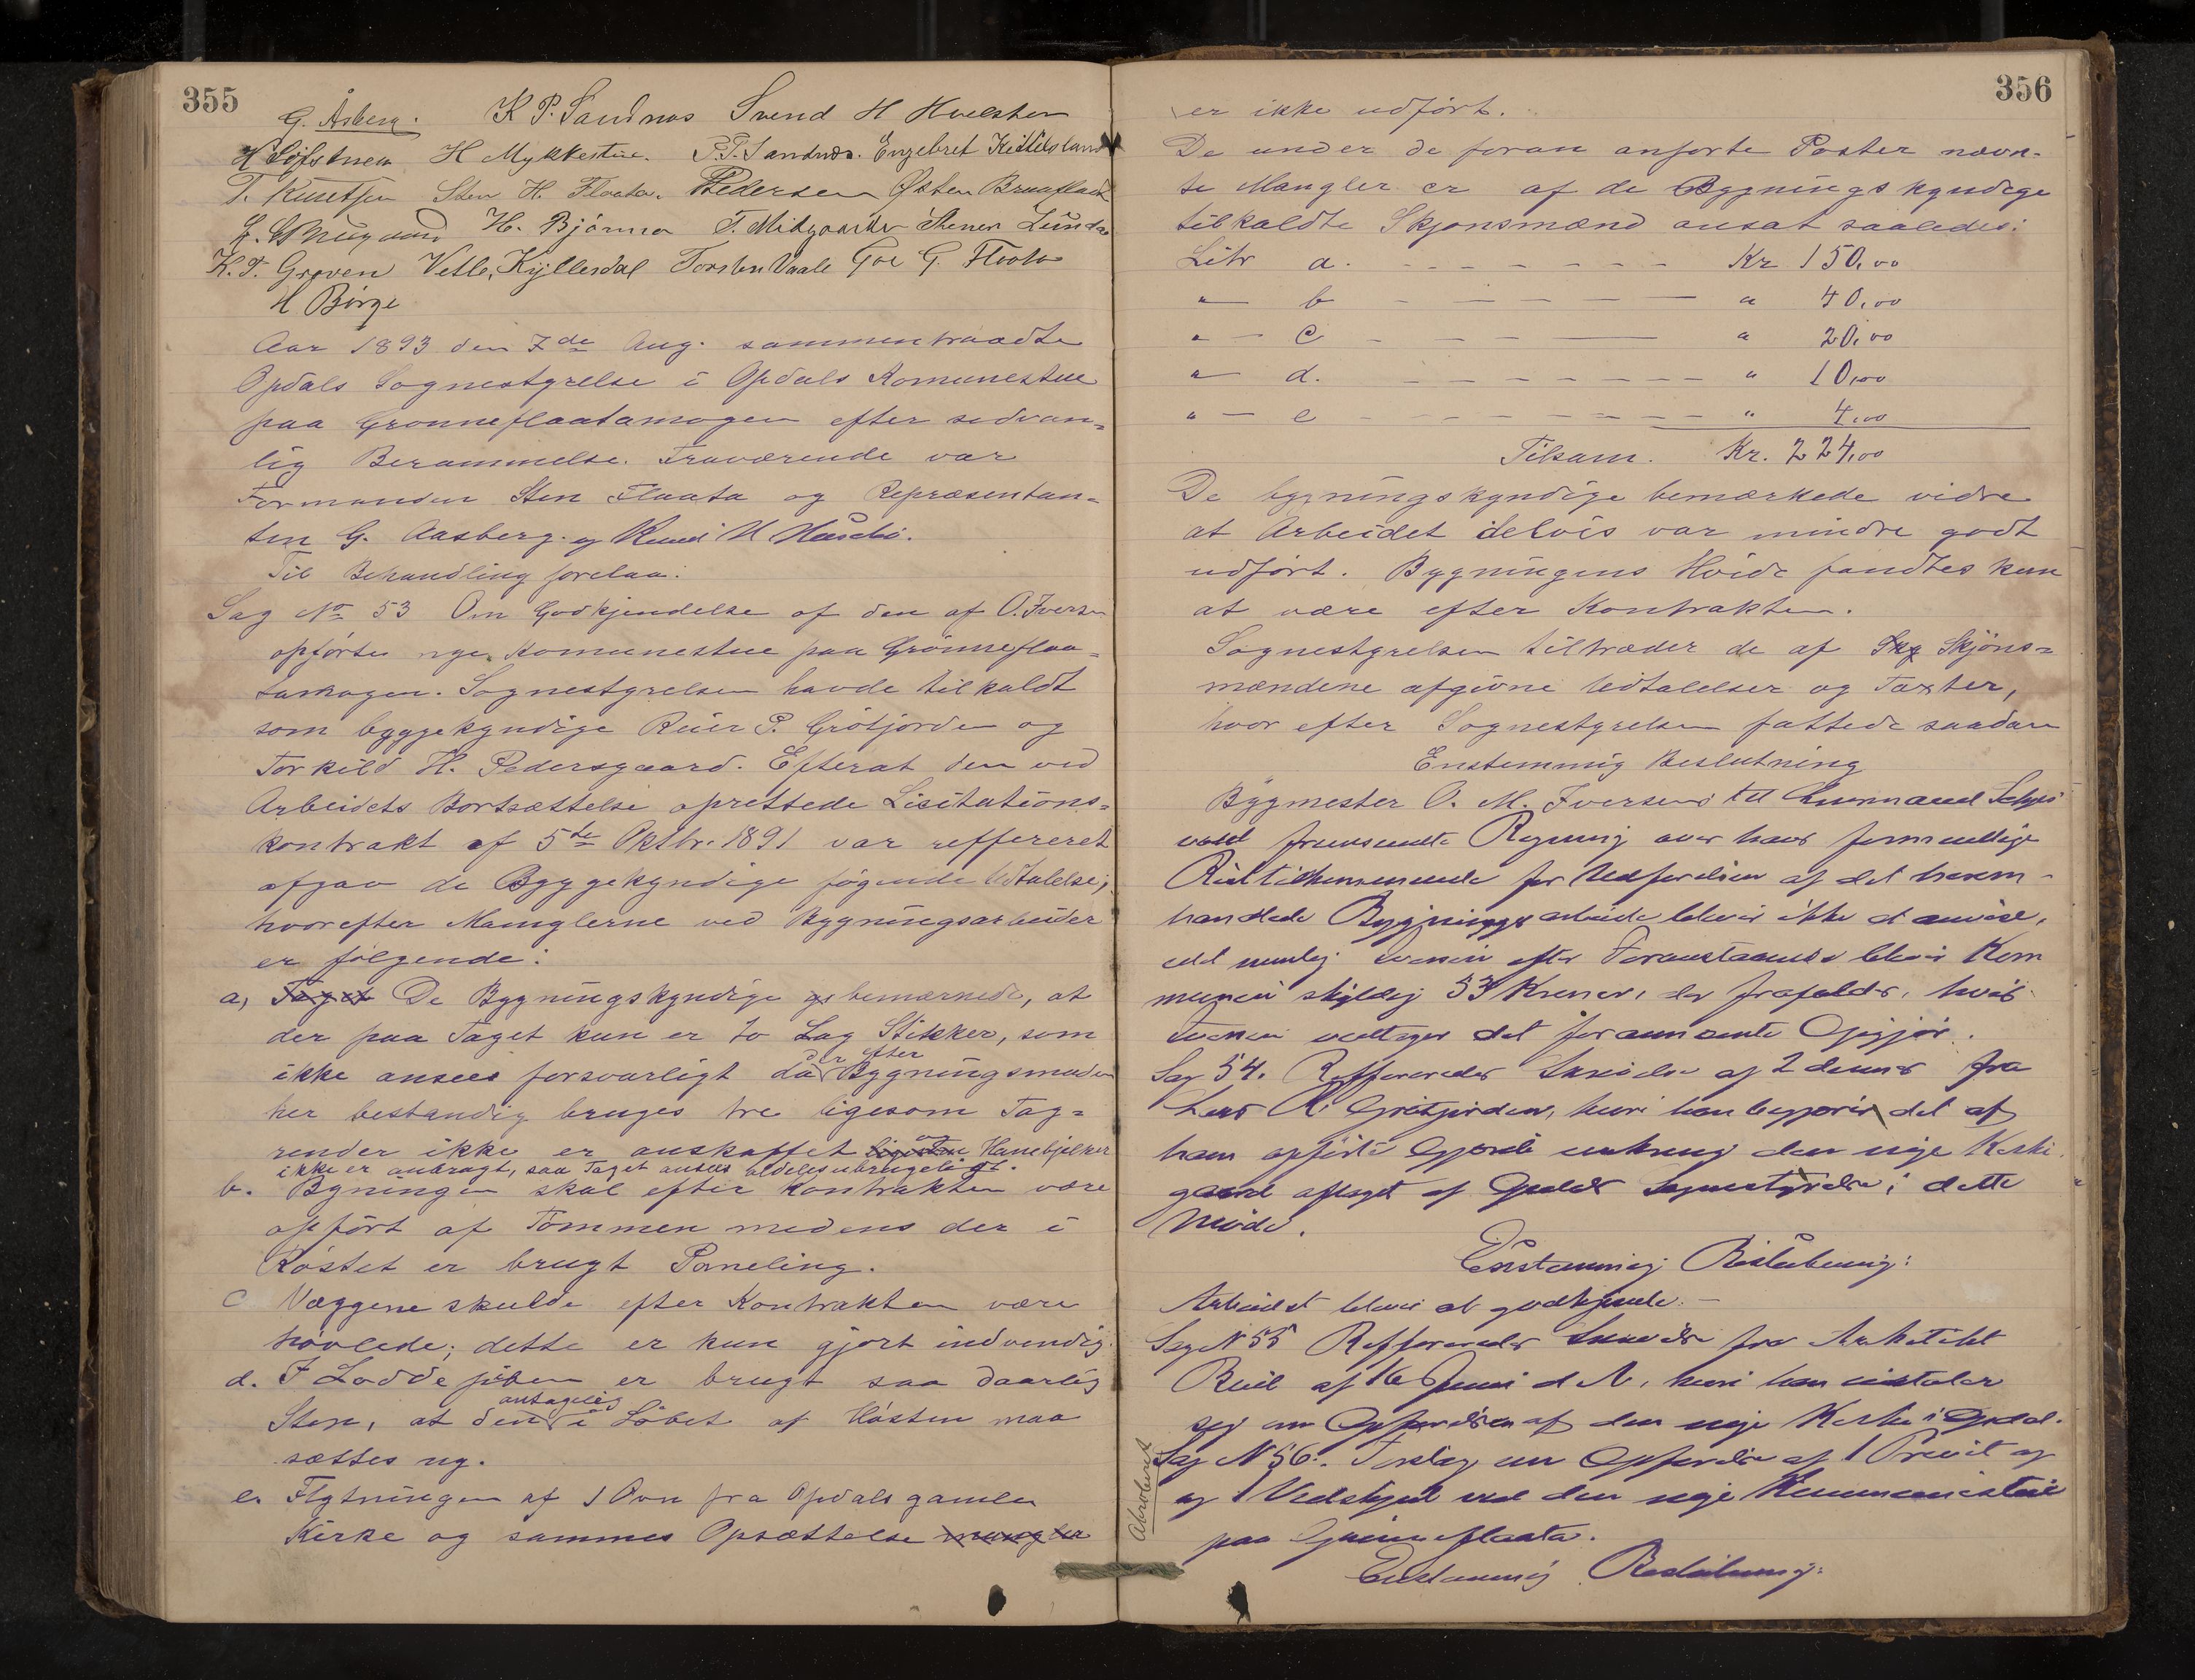 355
G. Åsberg. K P. Sandnæs Svend H Hvelsten
H Løfstuen H Mykkestue. P.T. Sandnæs. Engebret Kittilsland
T. Knutsen Sten H. Flaata. Pedersen Østen Braafladt
H. Bjørnna T. Midgaarden Stener Lunda
K. T. Groven Vetle Kyllesdal Torsten Vaale Toe G. Flaata
H Børge
Aar 1893 den 7de Aug. sammentraadte
Opdals Sognestyrelse i Opdals Komunestue
paa Grønneflaatamogen efter sedvan=
lig Berammelse. Fraværende var
Formanden Sten Flaata og Repræsentan=
ten G. Aasberg. og Knud
Til Behandling forelaa:
Sag No 53 Om Godkjendelse af den af O. Iversen
opførte nye Komunestue paa Grønneflaa=
tamogen. Sognestyrelsen havde tilkaldt
som byggekyndige Reier P. Grøtjorden og
Torkild H. Pedersgaard. Efterat den ved
Arbeidets Bortsættelse oprettede Lisitations=
kontrakt af 5te Oktbr. 1891 var reffereret
afgav de Byggekyndige føgende Udtalelse;
hvorefter Manglerne ved Bygningsarbeider
er følgende:
a, Taget De Bygningskyndige bemærkede, at
der paa Taget kun er to Lag Stikker, som
ikke ansees forsvarligt da der efter Bygningsmaaden
her bestandig bruges tre ligesom Tag=
render ikke er anskaffet ligesom og Hanebjelker
ikke er anbragt, saa Taget ansees aldeles ubrugeligt.
b. Bygningen skal efter Kontrakten være
opført af Tømmer medens der i
Røstet er brugt Paneling.
c Væggene skulde efter Kontrakten være
høvlede; dette er kun gjort indvendig.
d. I Lodde piben er brugt saa daarlig
Sten, at den antagelig i Løbet af Høsten maa
sættes ny.
e. Flytningen af 1 Ovn fra Opdals gamle
Kirke og sammes Opsættelse mangler
356
er ikke udført.
De under de foran anførte Poster nævn-
te Mangler er af de Bygningskyndige
tilkaldte Skjønsmænd ansat saaledes:
Litr a. - - - - - - - Kr 150,00
" b - - - - - - " 40,00
" - c - - - - - " 20,00
" d. - - - - - - - " 10,00
" - e - - - - - - - " 4,00
Tilsam. Kr. 224,00
De bygningskyndige bemærkede vidre
at Arbeidet delvis var mindre godt
udført. Bygningens Høide fandtes kun
at være efter Kontrakten.
Sognestyrelsen tiltræder de af Skjøns=
mændene afgivne Udtalelser og Taxter,
hvor efter Sognestyrelsen fattede saadan
Enstemmig Beslutning
Bygmester O. M. Iversens til Lensmand
vold fremsendte Regning over hans formentlige
Resttilkommende for Udførelsen af det herom-
handlede Bygningsarbeide bliver ikke at anvise,
idet nemlig Iversen efter Foranstaaende bliver Kom
munen skyldig 53 Kroner, der frafaldes, hvis
Iversen vedtager det forannævnte Opgjør.
Sag 54. Reffereredes Skrivelse af 2 dennes fra
Lars R. Grøtjorden, hvori han begjærer det af
ham opførte Gjerde omkring den nye Kirke
gaard aftaget af Opdals Sognestyrelse i dette
Møde.
Enstemmig Beslutning:
Arbeidet bliver at godkjende. -
Sag N 55 Reffereredes Skrivelse fra Arkitekt
Buil af 16 Juni d. A., hvori han
sig om Opførelsen af den nye Kirke i Opdal.
Sag N 56. Forslag om Opførelse af 1 Privit og
og 1 Vedskjul ved den nye Kommunestue
paa Grønneflaata.
Enstemmig Beslutning: